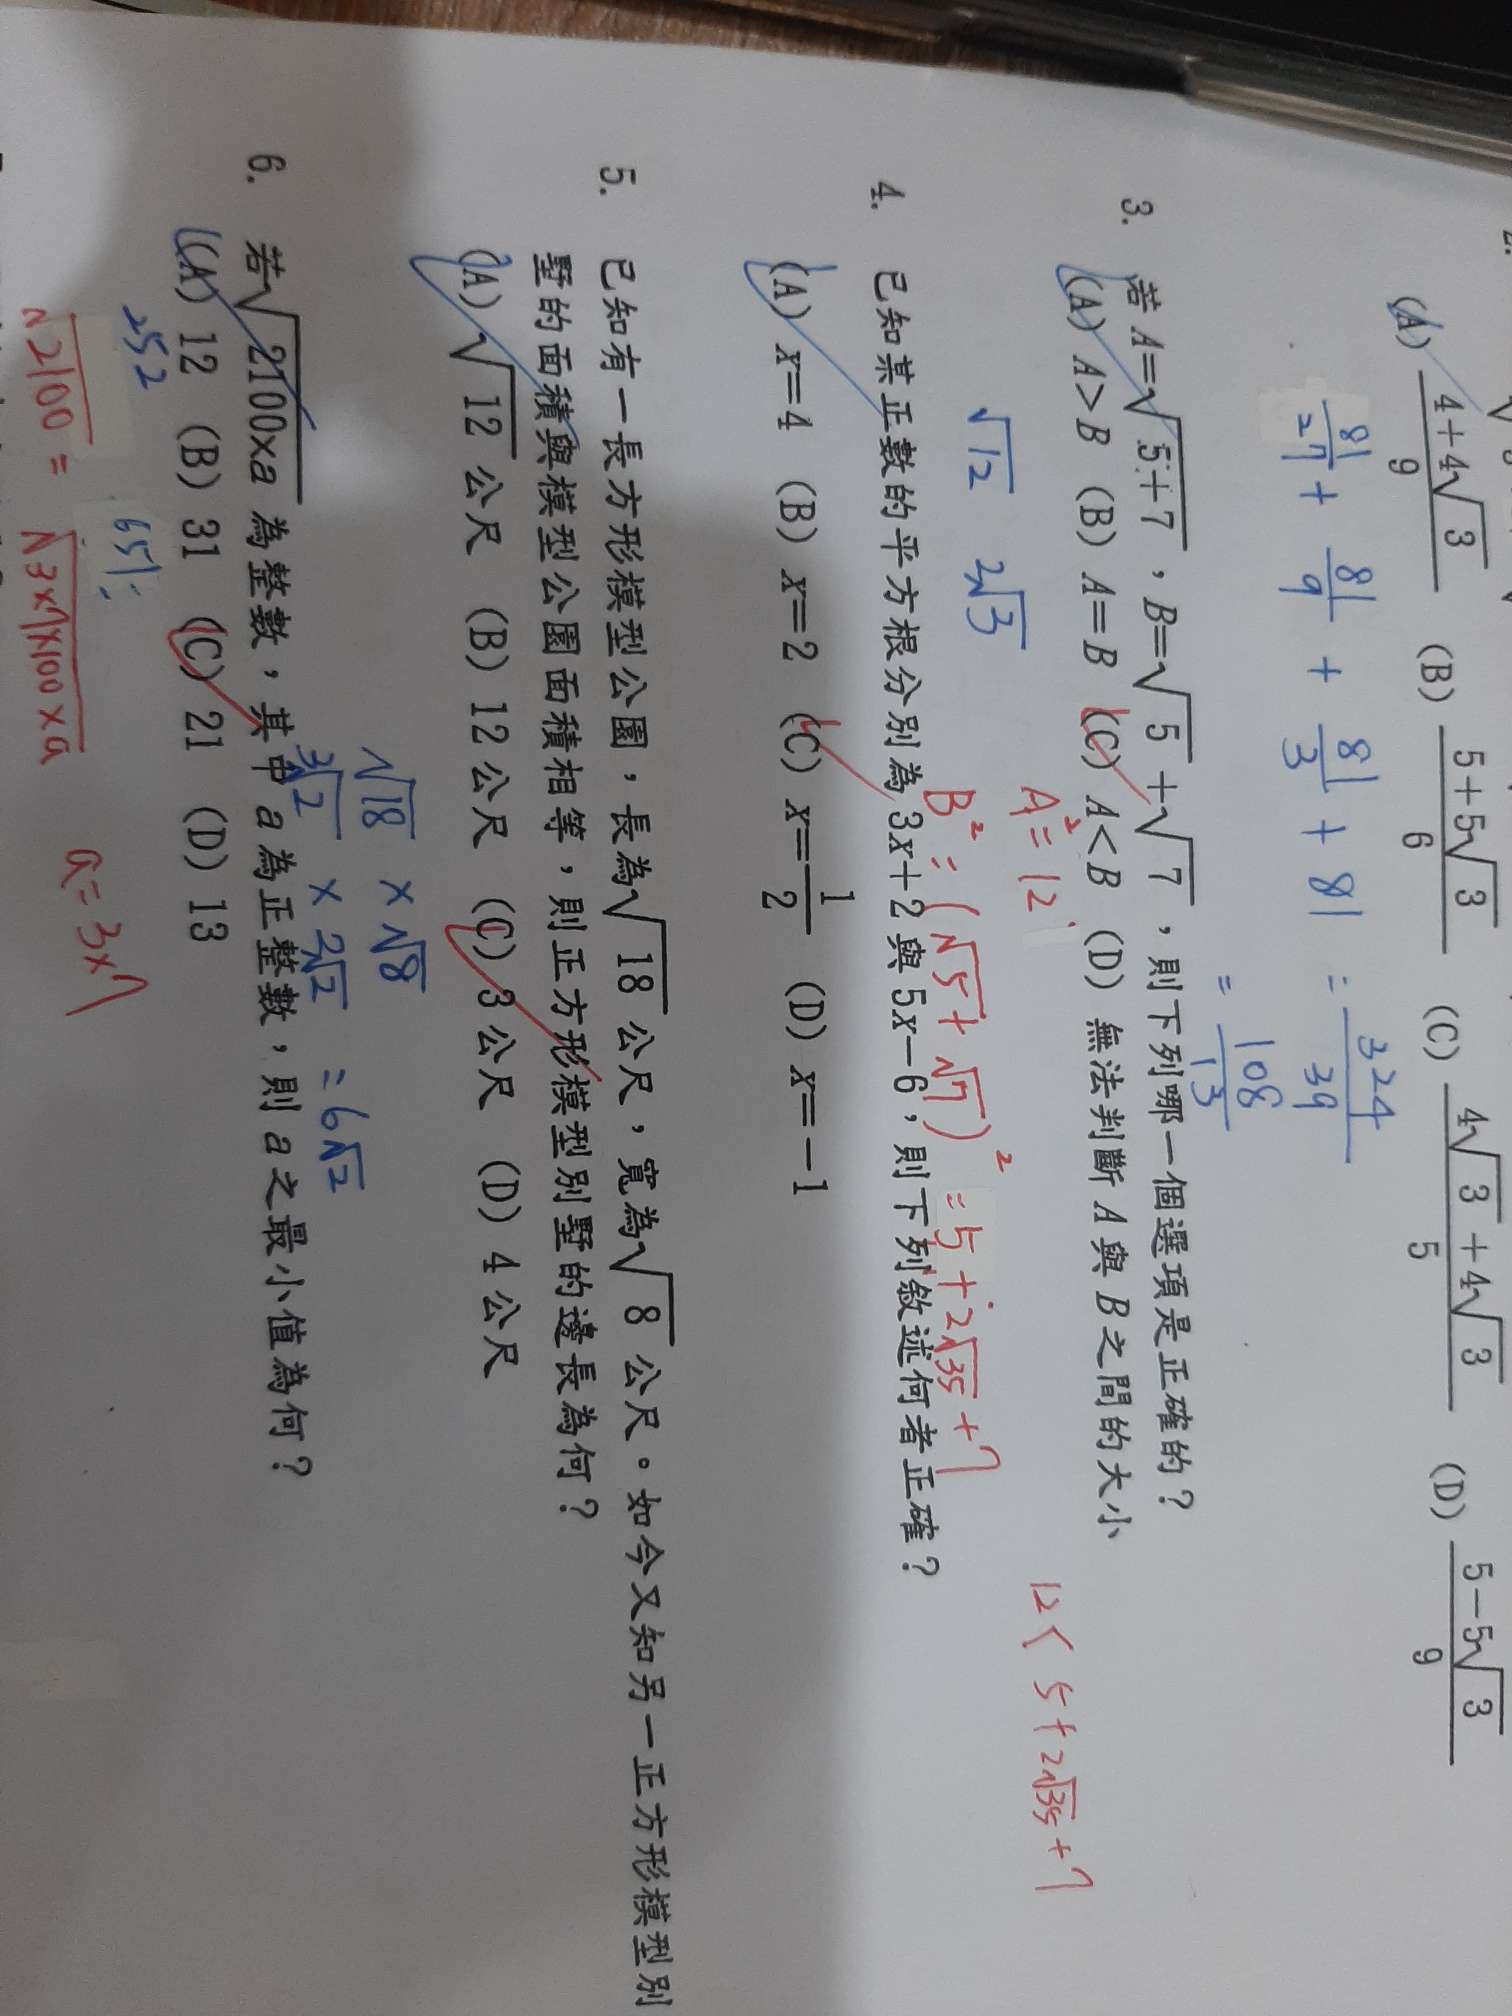 (A) 4+4√3/9 (B) 5+5√3/6 (C) 4√3+4√3/5 (D) 5−5√3/9
81/27 + 81/9 + 81/3 + 81 = 324/39
= 108/13
3. 若 A=√5+7，B=√5+√7，則下列哪一個選項是正確的？
(A) A>B (B) A=B (C) A<B (D) 無法判斷 A 與 B 之間的大小
A²=12 12 < 5+2√35+7
√12 2√3 B²=(√5+√7)²=5+2√35+7
4. 已知某正數的平方根分別為 3x+2 與 5x−6，則下列敘述何者正確？
(A) x=4 (B) x=2 (C) x=1/2 (D) x=−1
5. 已知有一長方形模型公園，長為√18 公尺，寬為√8 公尺。如今又知另一正方形模型別
墅的面積與模型公園面積相等，則正方形模型別墅的邊長為何？
(A) √12 公尺 (B) 12 公尺 (C) 3 公尺 (D) 4 公尺
√18 × √8
3√2 × 2√2 = 6√2
6. 若√2100×a 為整數，其中 a 為正整數，則 a 之最小值為何？
(A) 12 (B) 31 (C) 21 (D) 13
252
√2100 = √3×7×100×a a=3×7